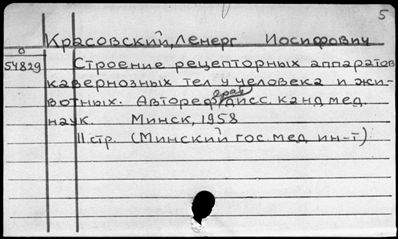 5
Красовский, Ленерг Иосифович
54829 Строение рецепторных аппаратов
кавернозных тел у человека и жи-
вотных. Автореферат дисс. канд мед.
наук. Минск, 1958
11 стр. (Минский гос. мед ин-т)